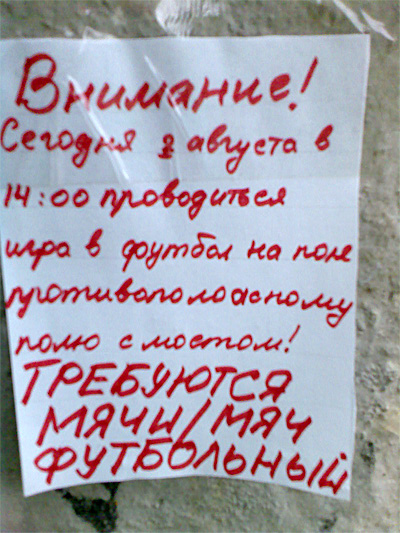 Внимание!
Сегодня 2 августа в
14:00 проводиться
игра в футбол на поле
противоположному
полю с мостом!
ТРЕБУЮТСЯ
МЯЧИ/МЯЧ
ФУТБОЛЬНЫЙ